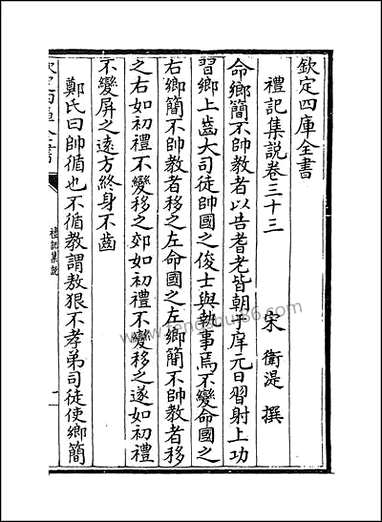 欽定四庫全書
禮記集說卷三十三
宋 衛湜 撰
命鄉簡不帥教者以告耆老皆朝于庠元日習射上功
習鄉上齒大司徒帥國之俊士與執事焉不變命國之
右鄉簡不帥教者移之左命國之左鄉簡不帥教者移
之右如初禮不變移之郊如初禮不變移之遂如初禮
不變屏之遠方終身不齒
鄭氏曰帥循也不循教謂敖狠不孝弟司徒使鄉簡
欽定四庫全書
禮記集說
一